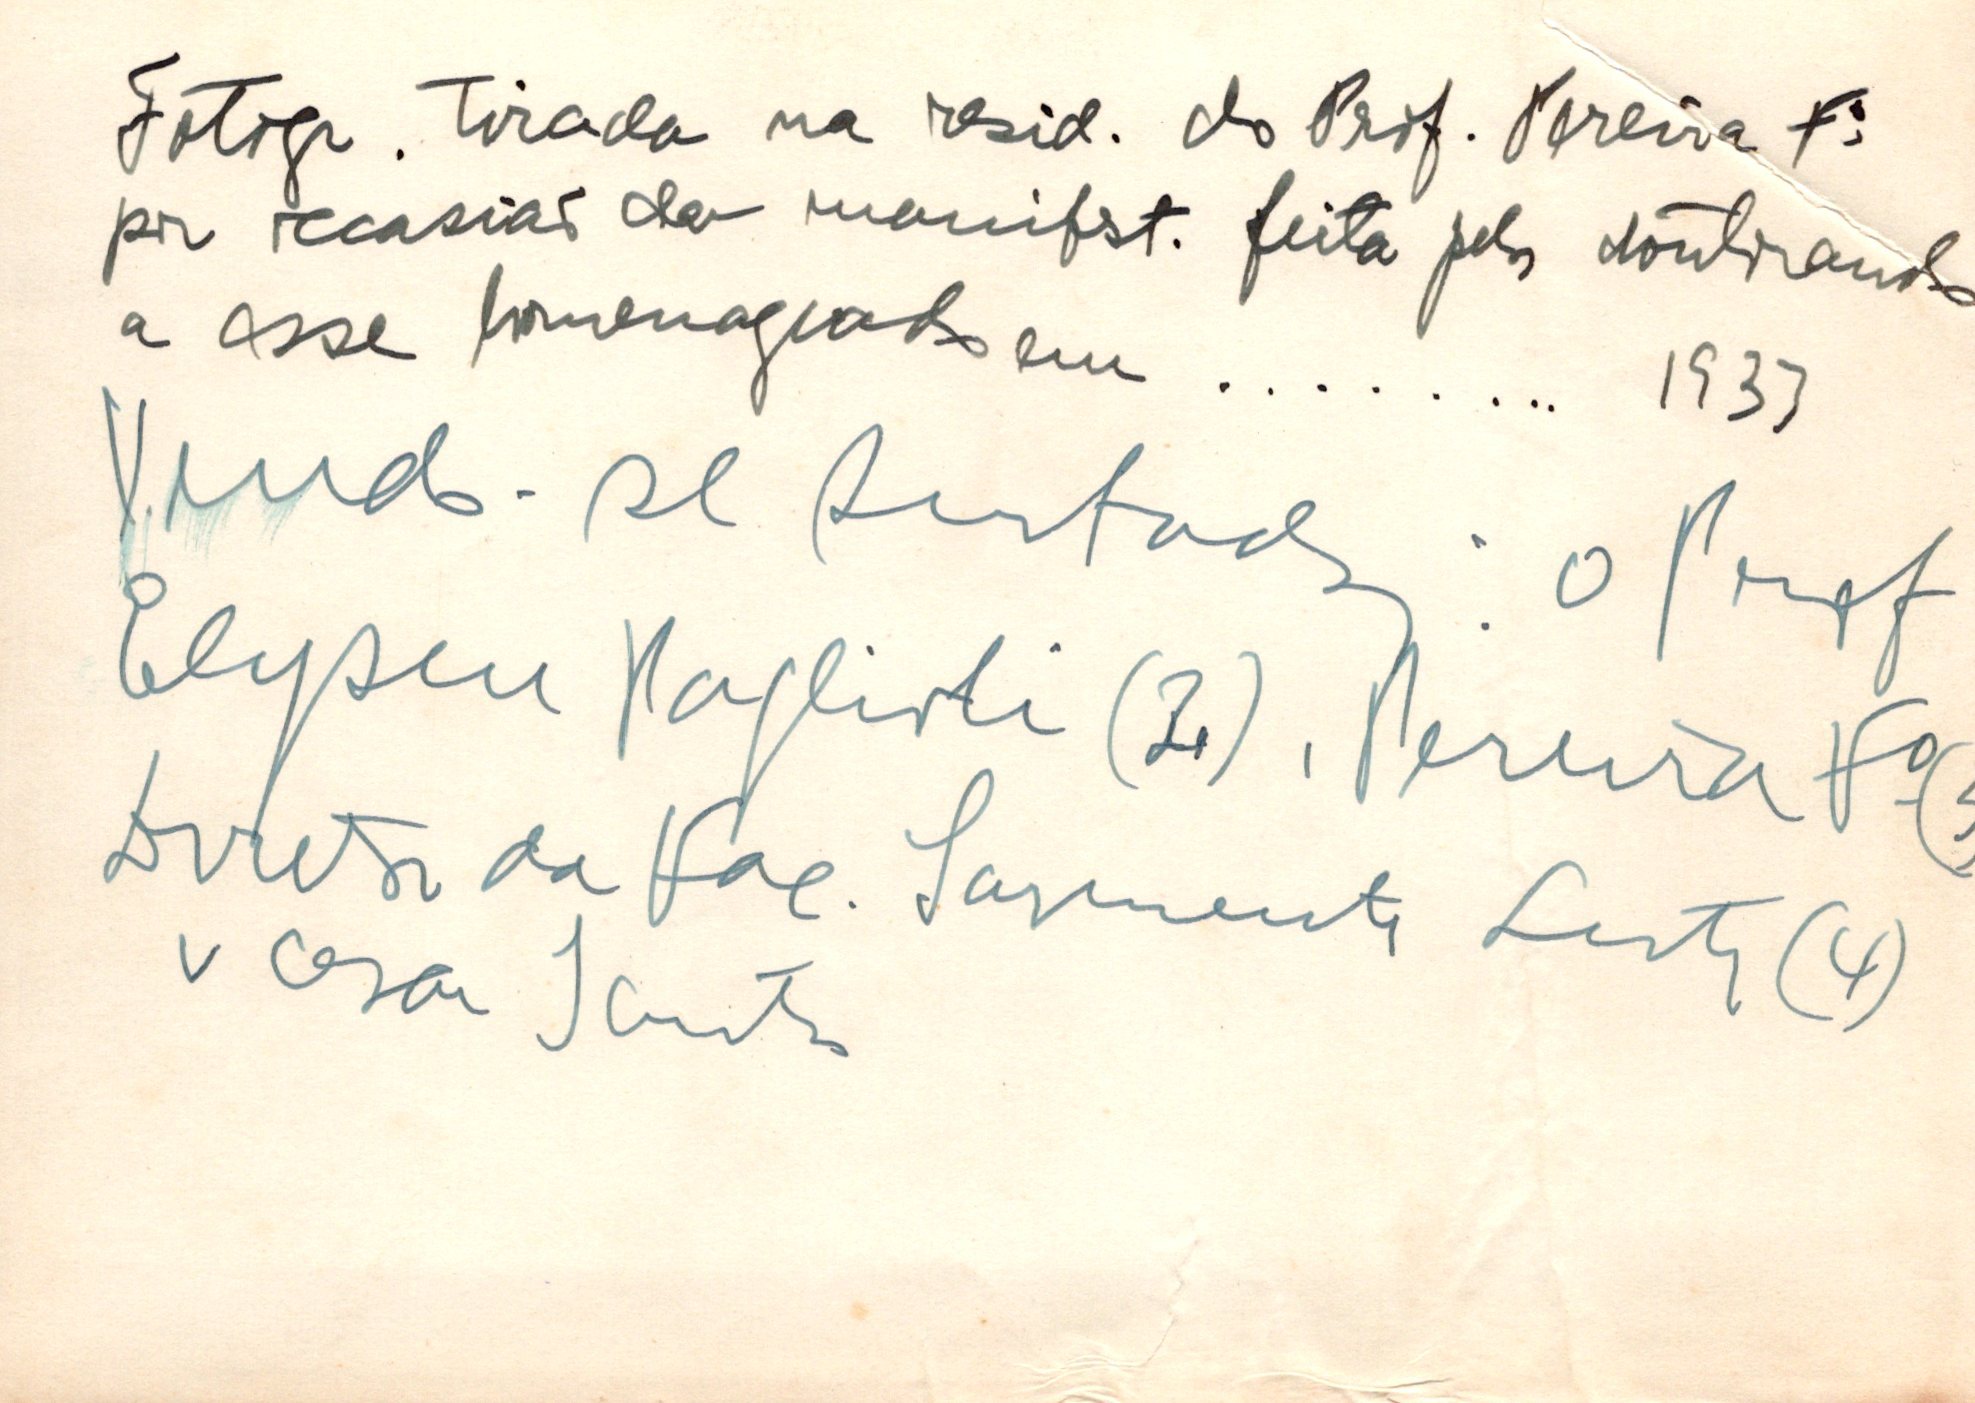 Fotogr. tirada na resid. do Prof. Pereira Fº
por occasião da manifest. feita pelos doutorandos
a esse homenageado em ......... 1937
Vendo-se sentados : o Prof
Elyseu Paglioli (2), Pereira Fº (3)
Diretor da Fac. Sarmento Leite (4)
v Cesar Santos